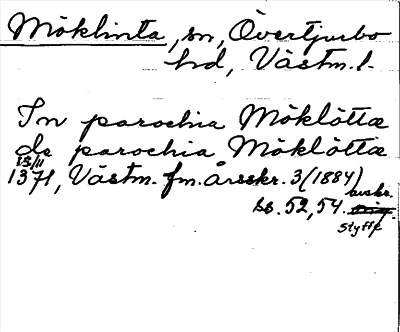 Möklinta, sn, Övertjurbo
hd, Västm. l.
In parochia Möklötta
de parochia Möklötta
13/11
1371, Västm. fm. Årsskr. 3 (1884)
avskr.
ss. 52, 54.
Styffe